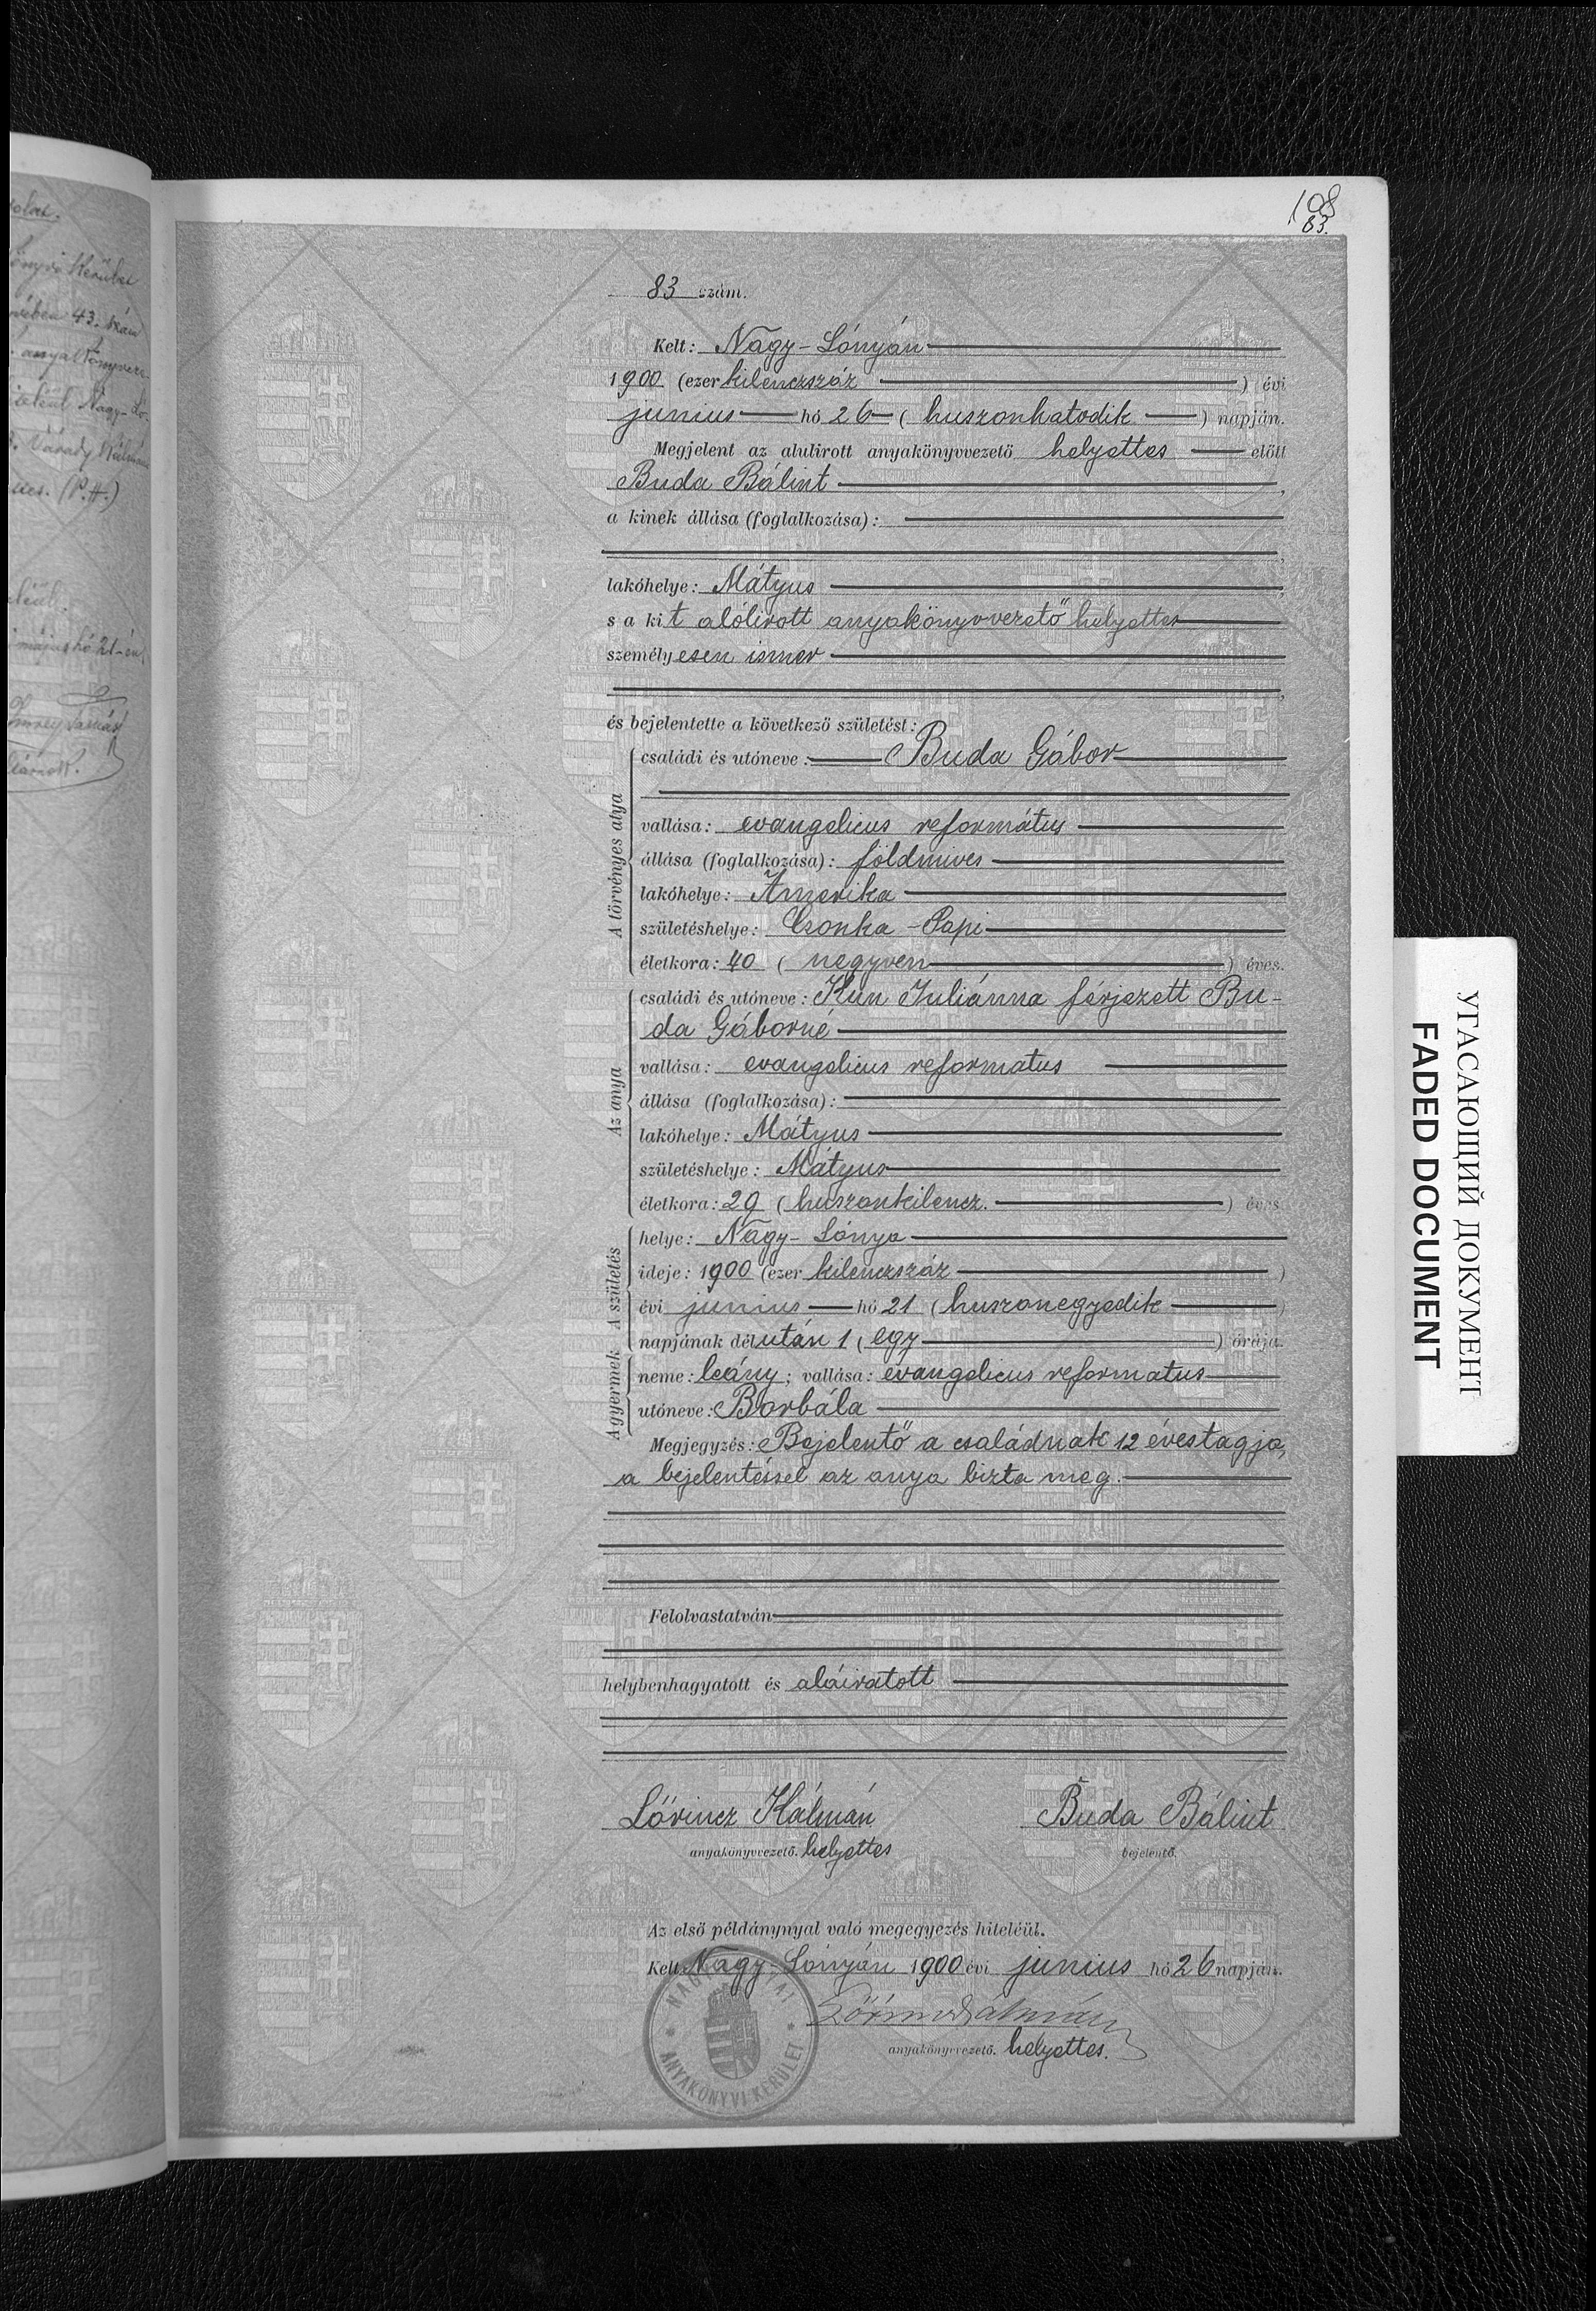 108
83.
83 szám.
Kelt: Nagy-Lónyán
1900 (ezer kilenczszáz) évi
junius hó 26 (huszonhatodik) napján.
Megjelent az alulirott anyakönyvvezető helyettes előtt
Buda Bálint,
a kinek állása (foglalkozása):
lakóhelye: Mátyus,
s a kit alólirott anyakönyvvezető helyettes
személyesen ismer
és bejelentette a következő születést:
A törvényes atya
családi és utóneve: Buda Gábor
vallása: evangelicus református
állása (foglalkozása): földmives
lakóhelye: Amerika
születéshelye: Csonka-Papi
életkora: 40 (negyven) éves.
Az anya
családi és utóneve: Kun Juliánna férjezett Bu-
da Gáborné
vallása: evangelicus reformatus
állása (foglalkozása):
lakóhelye: Mátyus
születéshelye: Mátyus
életkora: 29 (huszonkilencz.) éves
A születés
helye: Nagy-Lónya
ideje: 1900 (ezer kilenczszáz)
évi junius hó 21 (huszonegyedik)
napjának délután 1 (egy) órája.
A gyermek
neme: leány; vallása: evangelicus reformatus
utóneve: Borbála
Megjegyzés: Bejelentő a családnak 12 éves tagja,
a bejelentéssel az anya bizta meg.
Felolvastatván
helybenhagyatott és aláiratott
Lőrincz Kálmán Buda Bálint
anyakönyvvezető. helyettes bejelentő.
Az első példánynyal való megegyezés hiteléül.
Kelt Nagy-Lónyán 1900 évi junius hó 26 napján.
Lőrincz Kálmán
anyakönyvvezető. helyettes.
ANYAKÖNYVI KERÜLET
УГАСАЮЩИЙ ДОКУМЕНТ
FADED DOCUMENT